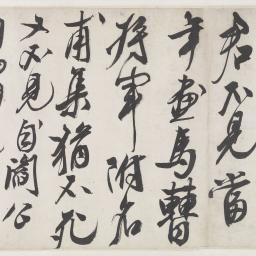 君不見當
年畫馬曹
將軍附名
甫集猶不死
又不見自閻公